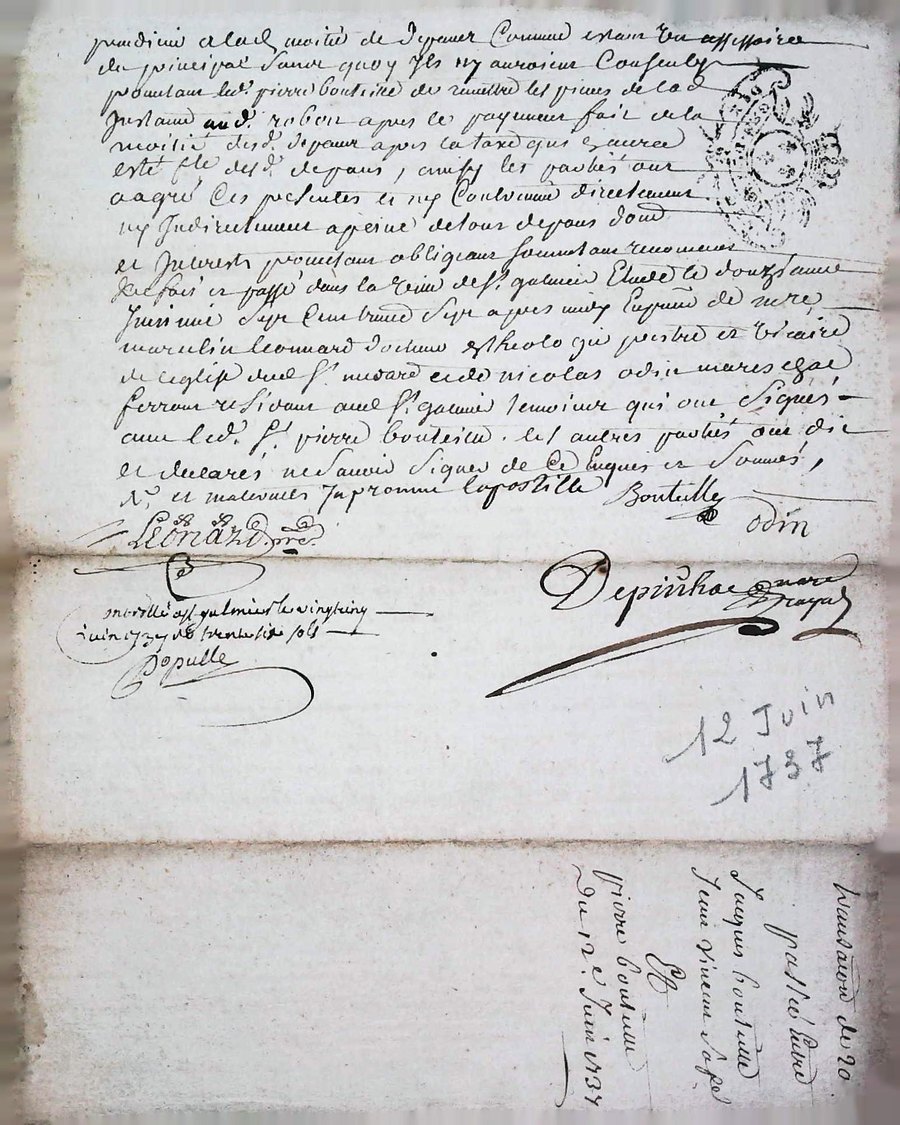 prejudice a lad. moitié de depans Comme estant un assessoire
du principal sans quoy ils ny auroient Consenty
promettant led. pierre bouteille de remettre les pieces de lad
Instance aud. robert apres le payement fait de la
moitié desd. depans apres la taxe qui en aura
esté fte desd. depans, ainsy les parties ont
aagré Ces presentes et ny Contrevenir directement
ny Indirectement a peine de tous depans dom
et Interests promettant obligeant soumettant renonceant
fait et passé dans la ville de st. galmier Etude le douzieme
Juin mil Sept Cent trente Sept apres midy En presence de mre
marcelin leonnard docteur en theologie prestre et vicaire
de leglise dud st. medard et de nicolas odin mareschal
ferrant residant aud st. galmier temoins qui ont Signés
avec led. Sr. pierre bouteille. les autres parties ont dit
et declarés ne Savoir Signer de Ce Enquis et Sommés,
lapostille Bouteille
odin
Leonard, pre.
Depinhac nore
Royal
controllé a st galmier le vingt
juin 1737
Depulle
12 Juin
1737
transaction de 20
passée Entre
Jacques bouteille
Jean vincent
Et
pierre bouteille
Du 12e Juin 1737